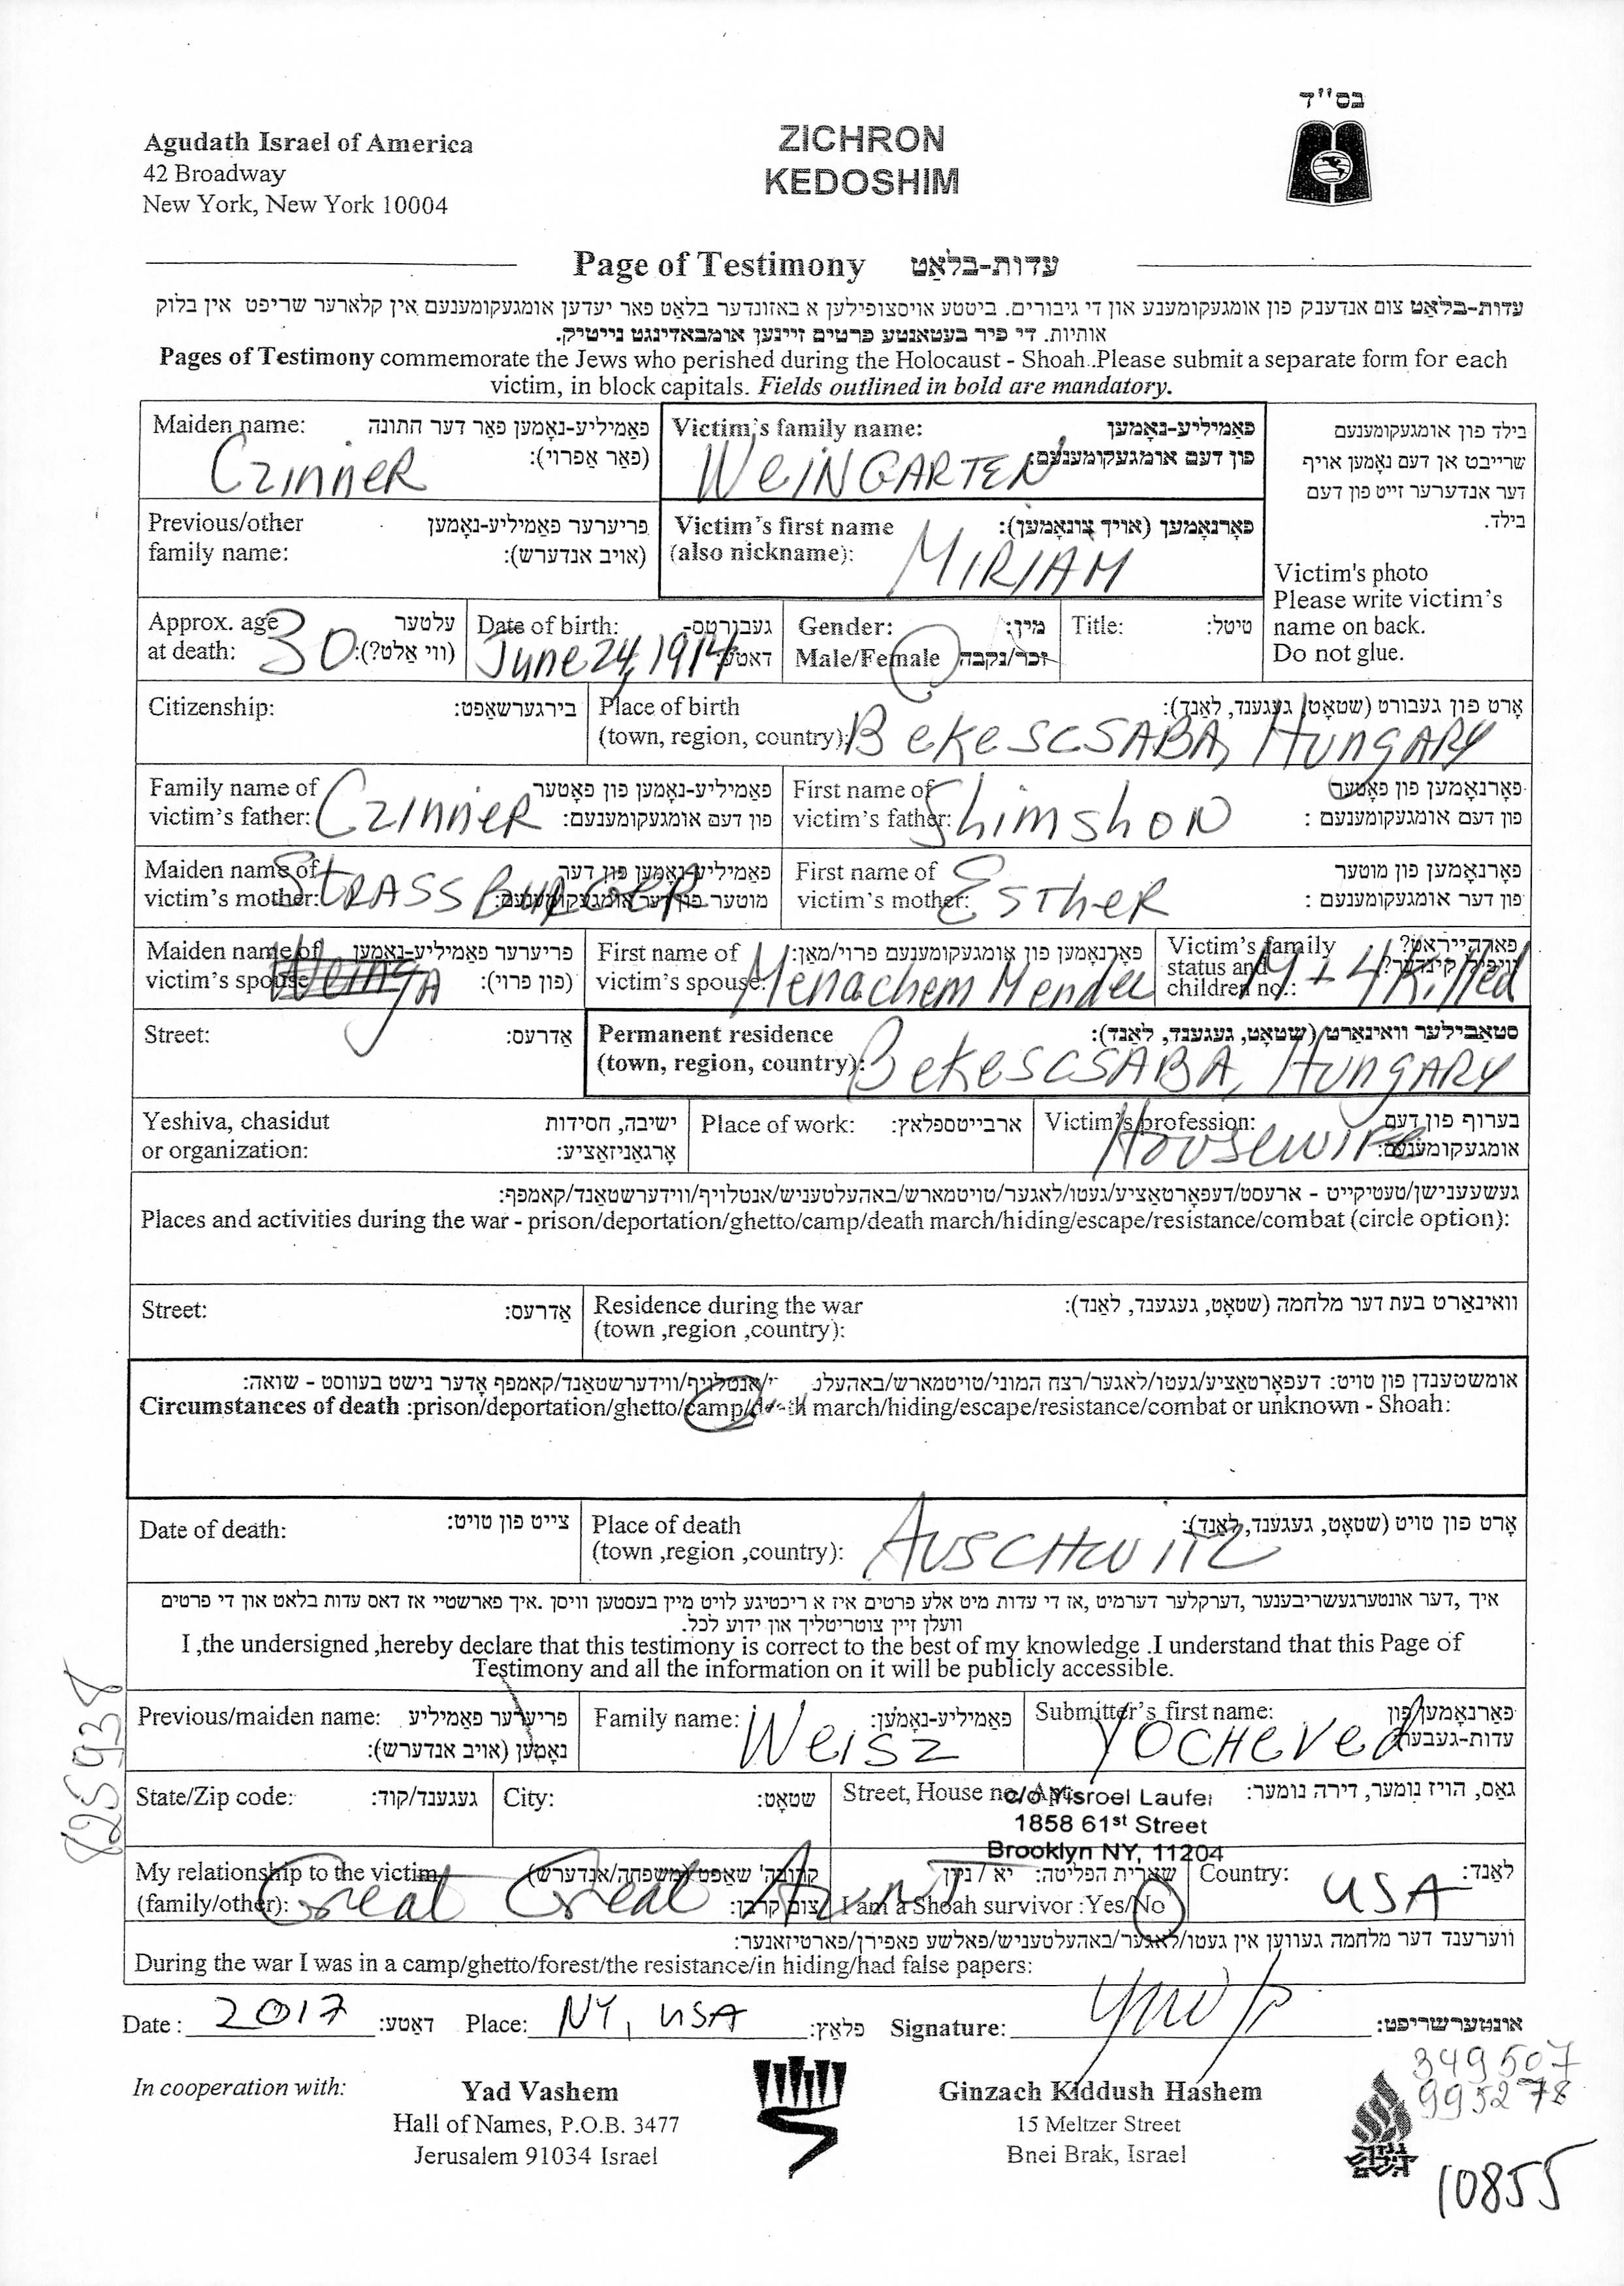 בס"ד
Agudath Israel of America
42 Broadway
New York, New York 10004
ZICHRON
KEDOSHIM
Page of Testimony עדות-בלאַט
עדות-בלאַט צום אנדענק פון אומגעקומענע און די גיבורים. ביטע אויסצופילען א באזונדער בלאט פאר יעדען אומגעקומענעם אין קלארער שריפט אין בלוק
אותיות. די פיר בעטאנטע פרטים זיינען אומבאדינגט נייטיק.
Pages of Testimony commemorate the Jews who perished during the Holocaust - Shoah..Please submit a separate form for each
victim, in block capitals. Fields outlined in bold are mandatory.
Maiden name: פאַמיליע-נאָמען פאַר דער חתונה
(פאַר אַפרוי):
Czinner
Victim's family name: פאַמיליע-נאָמען
פון דעם אומגעקומענעם:
WEINGARTEN
בילד פון אומגעקומענעם
שרייבט אן דעם נאָמען אויף
דער אנדערער זייט פון דעם
בילד.
Victim's photo
Please write victim's
name on back.
Do not glue.
Previous/other פריערער פאַמיליע-נאָמען
family name: (אויב אנדערש):
Victim's first name פאָרנאָמען (אויך צונאָמען):
(also nickname):
MIRIAM
Approx. age עלטער
at death: (ווי אלט?):
30
Date of birth: געבורטס-
דאטע:
June 24, 1914
Gender: מין:
Male/Female זכר/נקבה
Title: טיטל:
Citizenship: בירגערשאַפט:
Place of birth אָרט פון געבורט (שטאָט, געגענד, לאַנד):
(town, region, country):
BEKESCSABA, HUNGARY
Family name of פאַמיליע-נאָמען פון פאָטער
victim's father: פון דעם אומגעקומענעם:
Czinner
First name of פאָרנאָמען פון פאָטער
victim's father: פון דעם אומגעקומענעם :
Shimshon
Maiden name of פאַמיליע-נאָמען פון דער
victim's mother: מוטער פון דער אומגעקומענעם:
STRASSBURGER
First name of פאָרנאָמען פון מוטער
victim's mother: פון דער אומגעקומענעם :
ESTHER
Maiden name of פריערער פאַמיליע-נאָמען
victim's spouse: (פון פרוי):
First name of פאָרנאָמען פון אומגעקומענעם פרוי/מאן:
victim's spouse:
Menachem Mendel
Victim's family פארהייראט?
status and וויפיל קינדער?
children no.:
M + 4 Killed
Street: אַדרעס:
Permanent residence סטאַבילער וואוינאָרט (שטאָט, געגענד, לאַנד):
(town, region, country):
BEKESCSABA, HUNGARY
Yeshiva, chasidut ישיבה, חסידות
or organization: אָרגאַניזאַציע:
Place of work: ארבייטספלאץ:
Victim's profession: בערוף פון דעם
אומגעקומענעם:
HOUSEWIFE
געשעענישן/טעטיקייט - ארעסט/דעפאָרטאַציע/געטו/לאגער/טויטמארש/באהעלטעניש/אנטלויף/ווידערשטאַנד/קאמפף:
Places and activities during the war - prison/deportation/ghetto/camp/death march/hiding/escape/resistance/combat (circle option):
Street: אַדרעס:
Residence during the war וואוינאָרט בעת דער מלחמה (שטאָט, געגענד, לאַנד):
(town ,region ,country):
אומשטענדן פון טויט: דעפּאָרטאַציע/געטו/לאגער/רצח המוני/טויטמארש/באהעלט /אנטלויף/ווידערשטאַנד/קאמפף אָדער נישט בעווסט - שואה:
Circumstances of death :prison/deportation/ghetto/camp/death march/hiding/escape/resistance/combat or unknown - Shoah:
Date of death: צייט פון טויט:
Place of death אָרט פון טויט (שטאָט, געגענד, לאַנד):
(town ,region ,country):
AUSCHWITZ
איך ,דער אונטערגעשריבענער ,דערקלער דערמיט ,אז די עדות מיט אלע פרטים איז א ריכטיגע לויט מיין בעסטען וויסן .איך פארשטיי אז דאס עדות בלאט און די פרטים
וועלן זיין צוטריטליך און ידוע לכל.
I ,the undersigned ,hereby declare that this testimony is correct to the best of my knowledge .I understand that this Page of
Testimony and all the information on it will be publicly accessible.
Previous/maiden name: פריערער פאַמיליע
נאָמען (אויב אנדערש):
Family name: פאַמיליע-נאָמען:
Weisz
Submitter's first name: פאָרנאָמען פון
עדות-געבער:
YOCHEVED
825938
State/Zip code: געגענד/קוד:
City: שטאָט:
Street, House no., Apt.: גאַס, הויז נומער, דירה נומער:
c/o Yisroel Laufer
1858 61st Street
Brooklyn NY, 11204
My relationship to the victim קרובה' שאַפט (משפחה/אנדערש)
(family/other): צום קרבן:
Great Great Aunt
שארית הפליטה: יא / ניין
I am a Shoah survivor :Yes/No
Country: לאַנד:
USA
ווערענד דער מלחמה געווען אין געטו/לאגער/באהעלטעניש/פאלשע פאפירן/פארטיזאנער:
During the war I was in a camp/ghetto/forest/the resistance/in hiding/had false papers:
Date : 2017 דאטע: Place: NY, USA פלאץ: Signature: אונטערשריפט:
349507
995278
In cooperation with:
Yad Vashem
Hall of Names, P.O.B. 3477
Jerusalem 91034 Israel
Ginzach Kiddush Hashem
15 Meltzer Street
Bnei Brak, Israel
10855